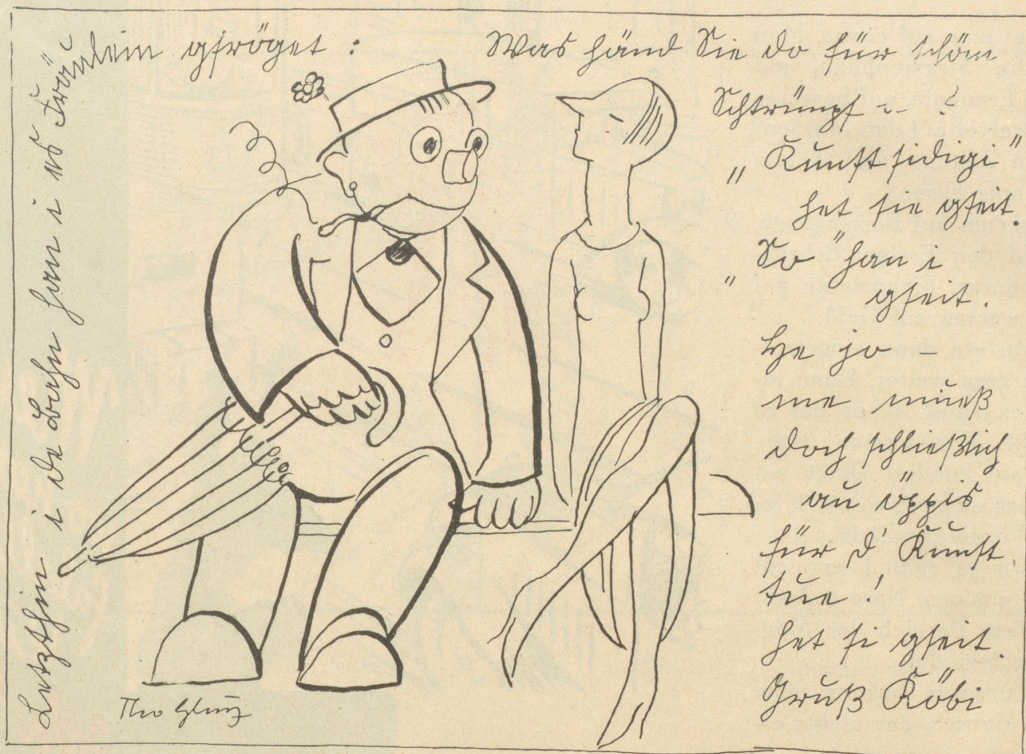 Letzthin i de Bahn han i es Fräulein gfröget :
Was händ Sie do für schöni
Schtrümpf -- ?
„Kunstsidigi"
het sie gseit.
„So" han i
gseit.
He jo –
me mueß
doch schließlich
au öppis
für d'Kunst
tue !
het si gseit.
Gruß Köbi
Theo Glinz